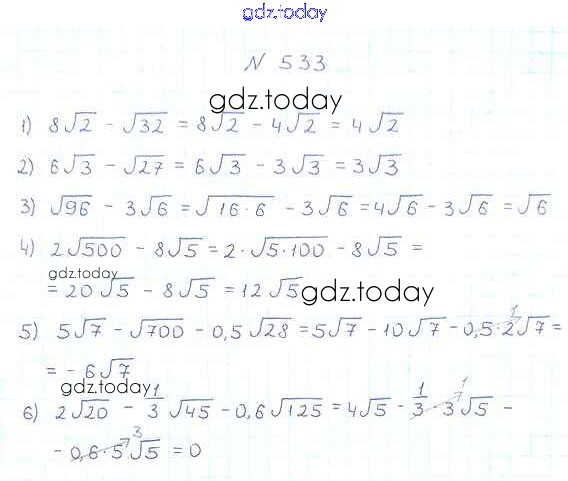 gdz.today
N 533
gdz.today
1) 8√2 - √32 = 8√2 - 4√2 = 4√2
2) 6√3 - √27 = 6√3 - 3√3 = 3√3
3) √96 - 3√6 = √16·6 - 3√6 = 4√6 - 3√6 = √6
4) 2√500 - 8√5 = 2·√5·100 - 8√5 =
gdz.today
= 20√5 - 8√5 = 12√5
gdz.today
5) 5√7 - √700 - 0,5√28 = 5√7 - 10√7 - 0,5·2√7 =
1
= - 6√7
gdz.today
6) 2√20 - 1/3 √45 - 0,6√125 = 4√5 - 1/3 · 3√5 -
1
- 0,6·5√5 = 0
3